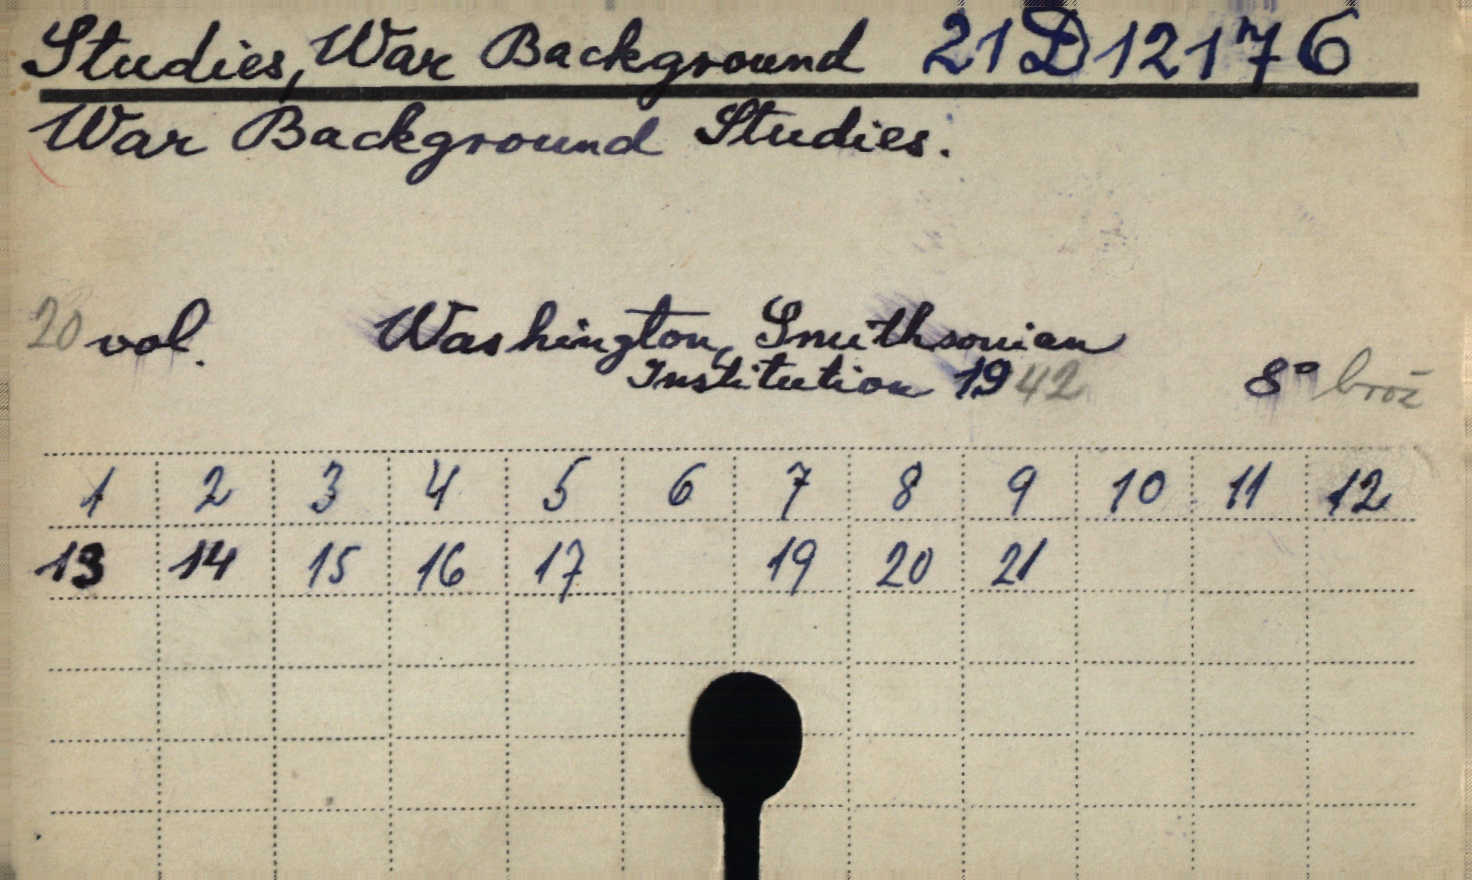 Studies, War Background 21 D 12176
War Background Studies.
20 vol. Washington, Smithsonian
Institution 1942 8° brož
1 2 3 4 5 6 7 8 9 10 11 12
13 14 15 16 17 19 20 21